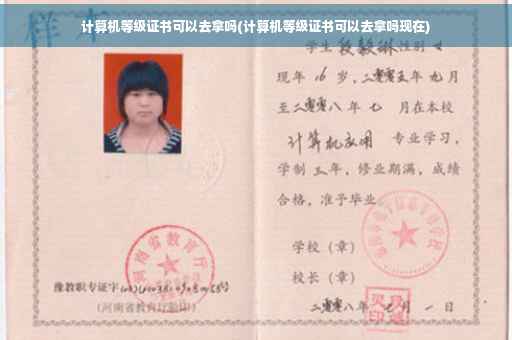 样本
计算机等级证书可以去拿吗(计算机等级证书可以去拿吗现在)
学生段毅琳性别女
现年16岁，二零零五年九月
至二零零八年七月在本校
计算机应用专业学习，
学制三年，修业期满，成绩
合格，准予毕业
学校（章）
校长（章）
二零零八年七月一日
河南省教育厅
豫教职专证字
(河南省教育厅验印)